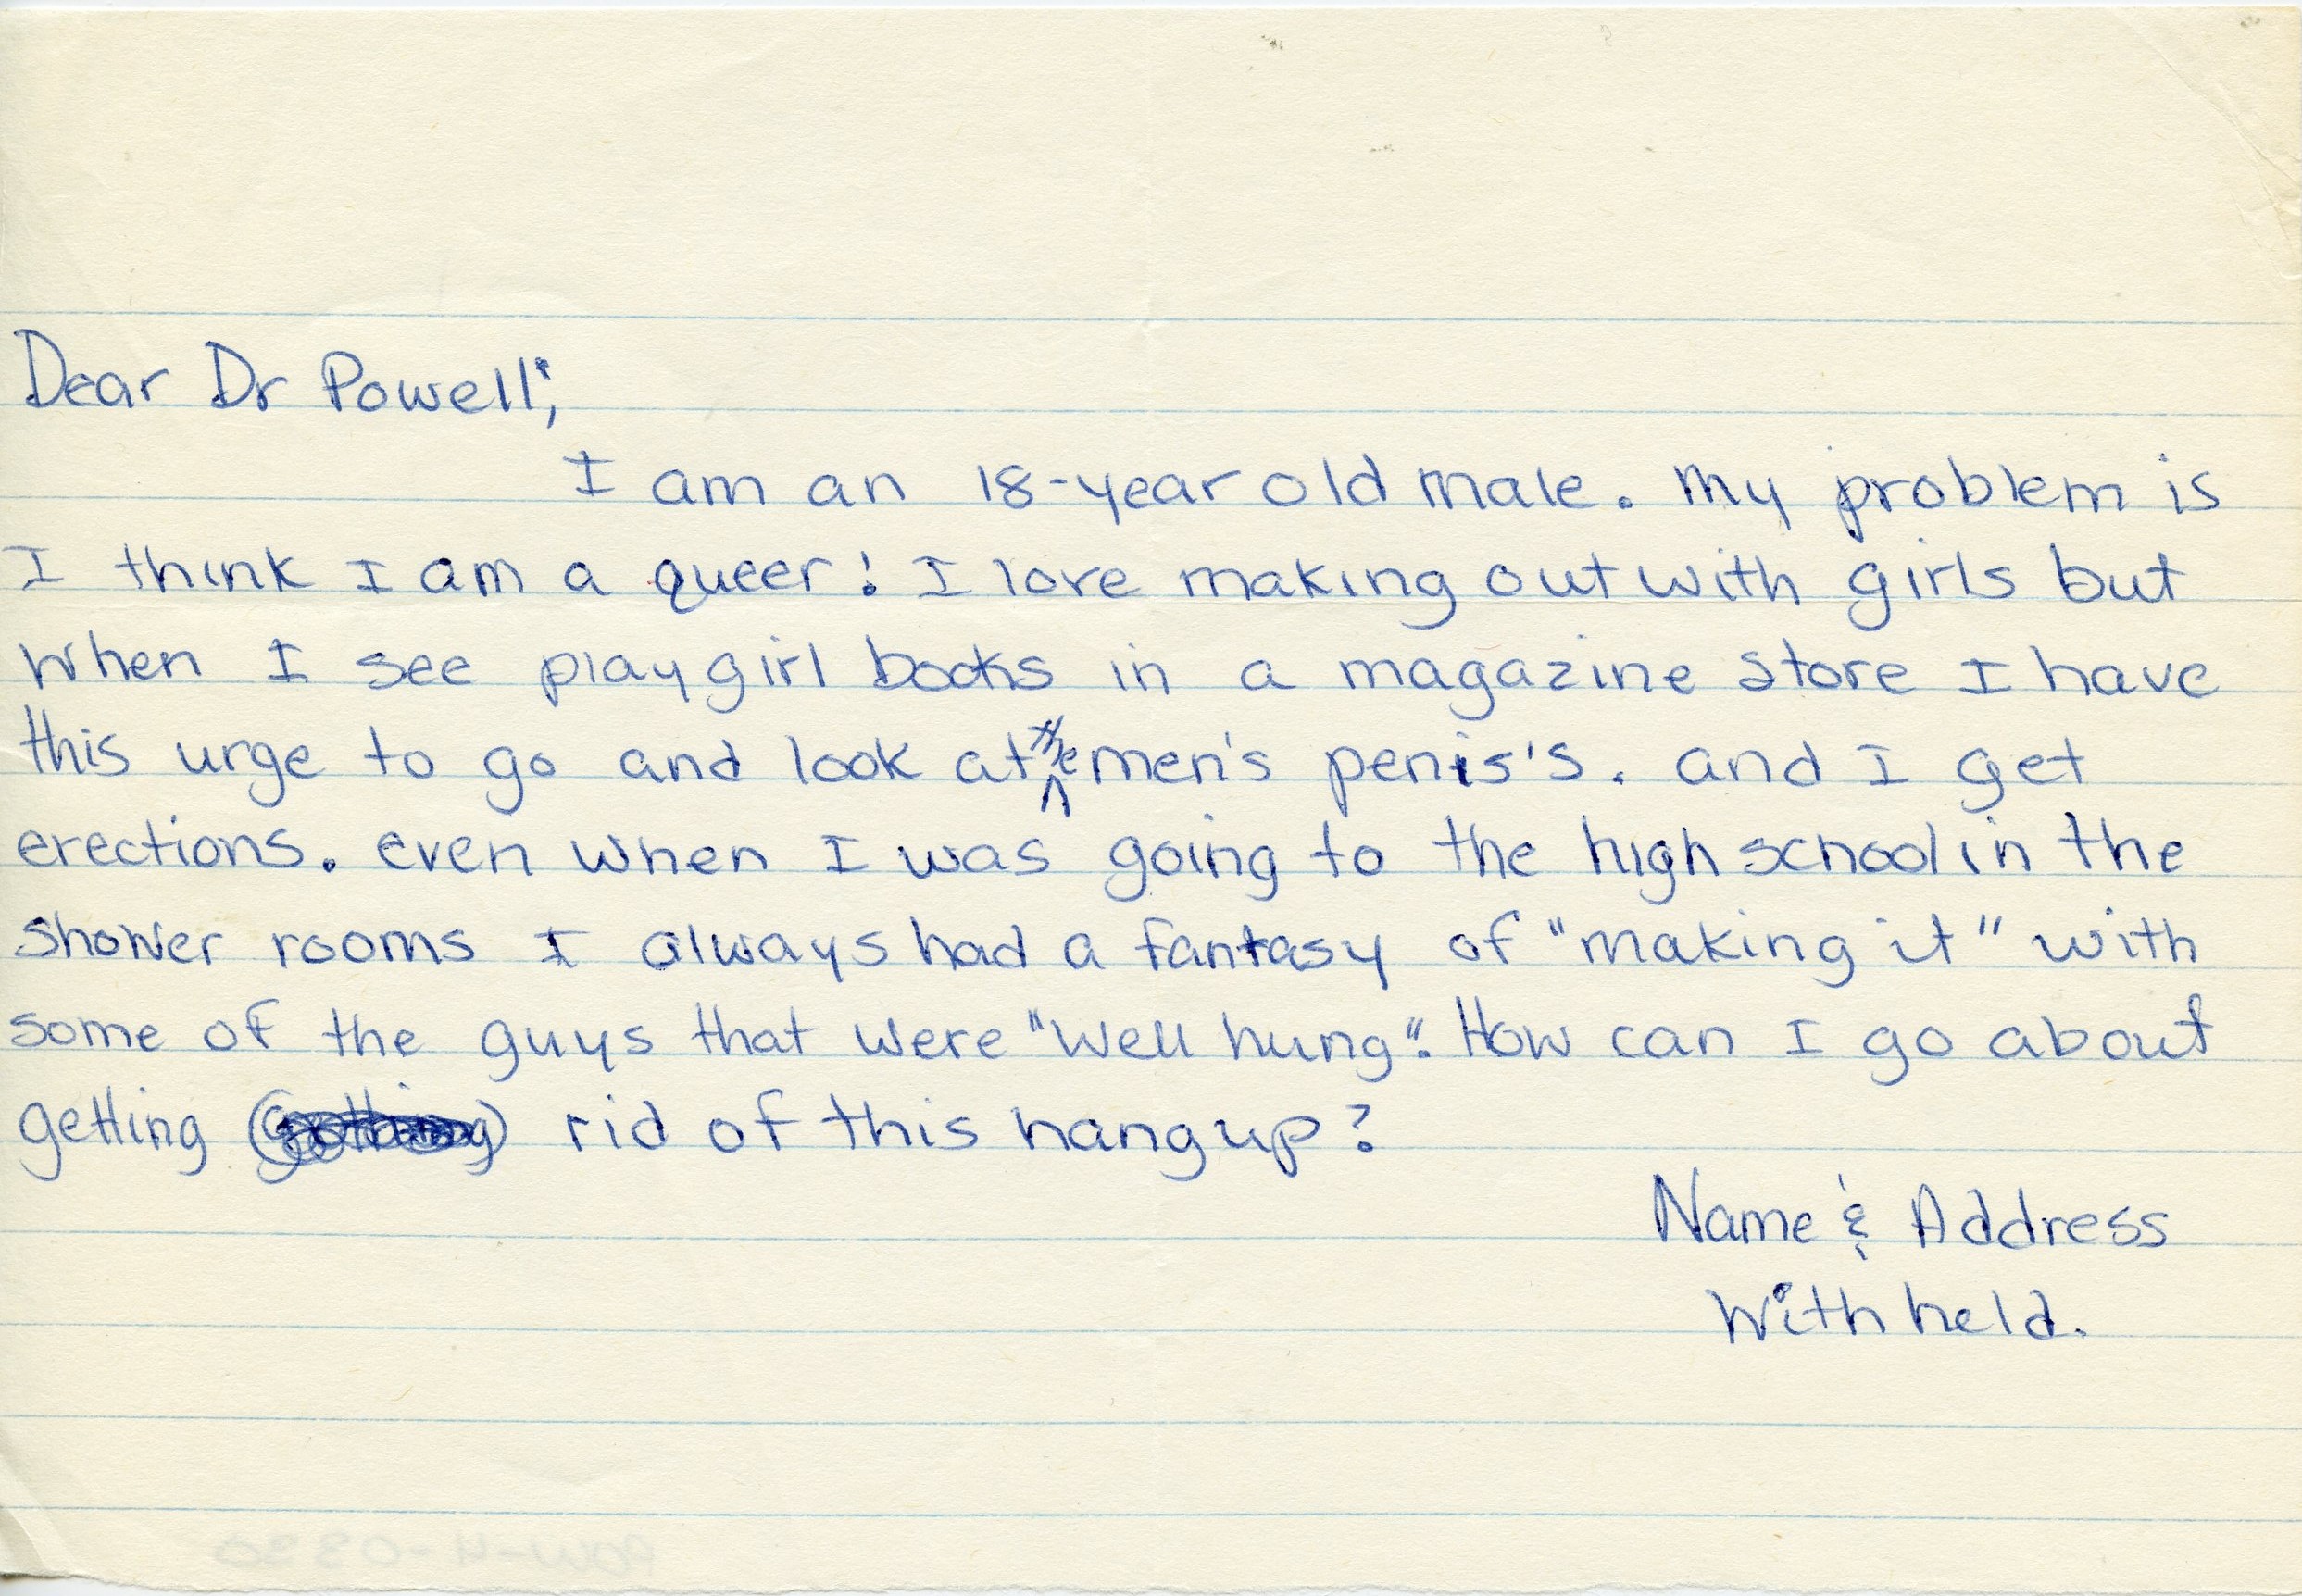 Dear Dr Powell;
I am an 18-year old male. My problem is
I think I am a queer! I love making out with girls but
when I see playgirl books in a magazine store I have
this urge to go and look at the men's penis's. and I get
erections. even when I was going to the high school in the
shower rooms I always had a fantasy of "making it" with
some of the guys that were "well hung". How can I go about
getting rid of this hang up?
Name & Address
With held.